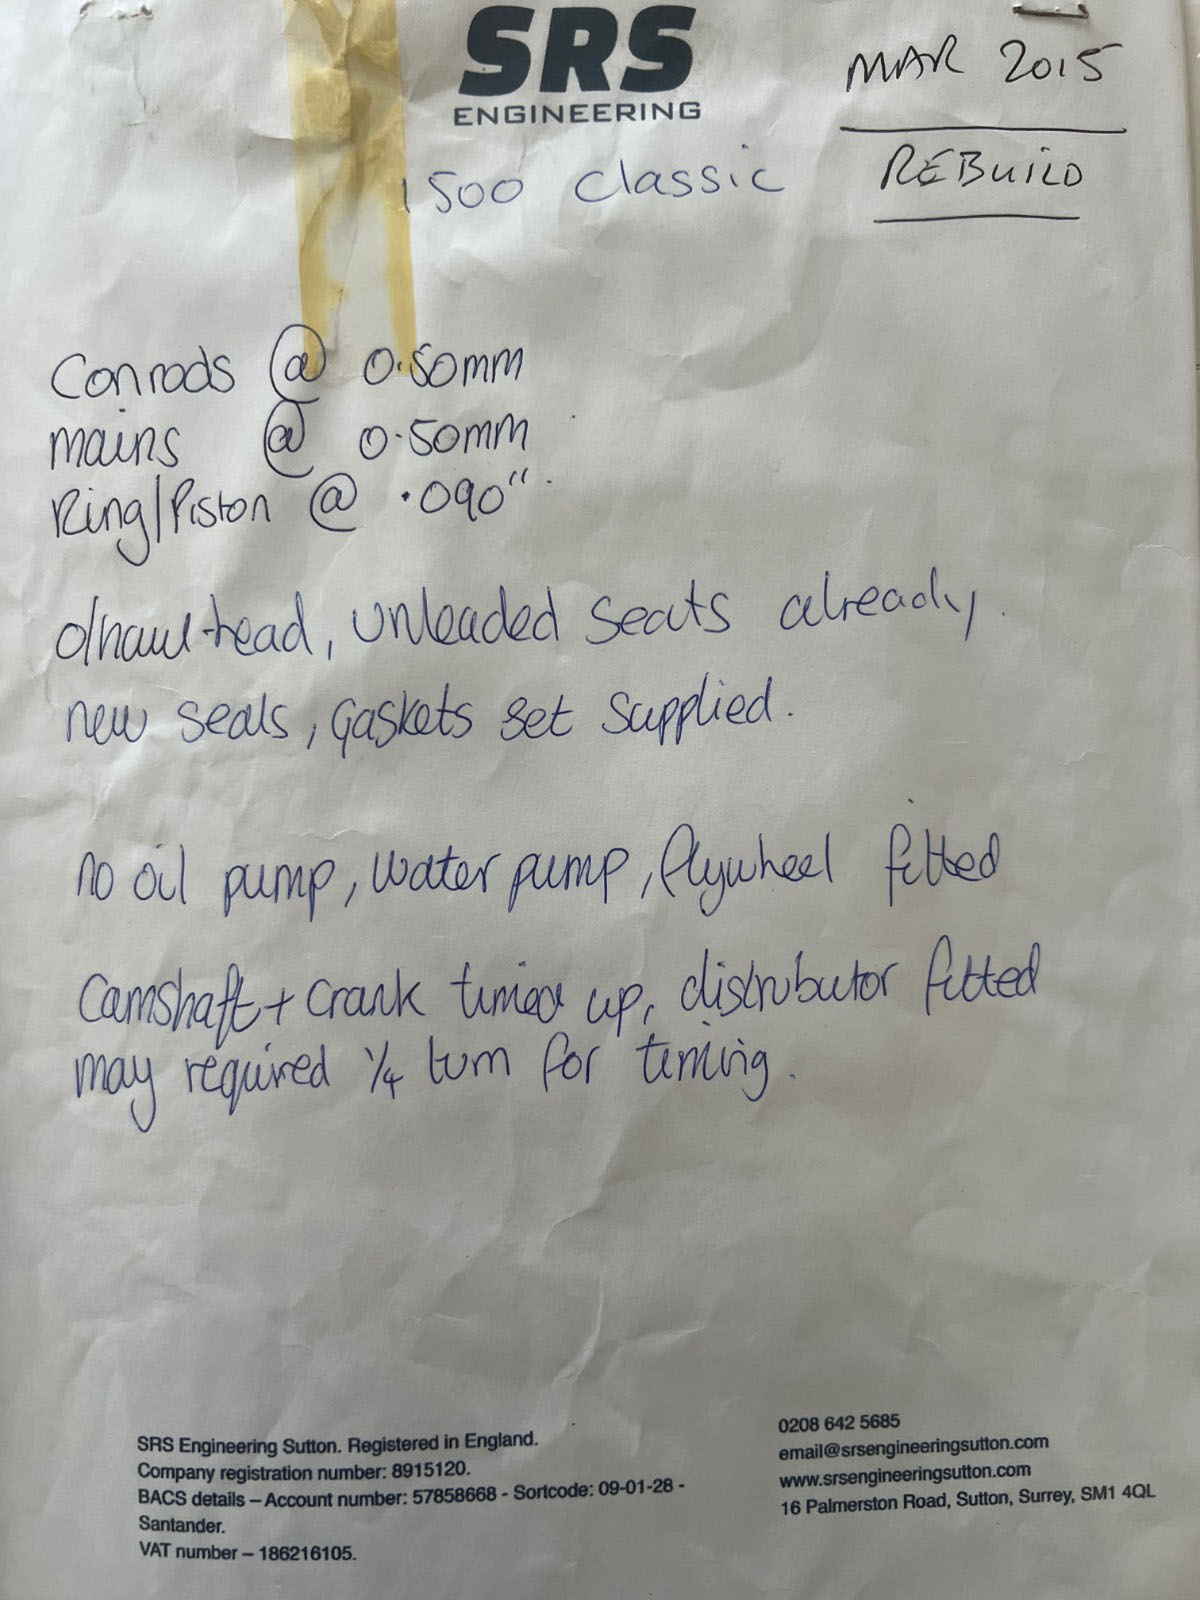 SRS
ENGINEERING
MAR 2015
REBUILD
1500 classic
Conrods @ 0.50mm
mains @ 0.50mm
Ring/Piston @ .090"
o/haul head, unleaded seats already.
new seals, gaskets set supplied.
no oil pump, water pump, flywheel fitted
Camshaft + crank timed up, distrubutor fitted
may required 1/4 turn for timing.
SRS Engineering Sutton. Registered in England.
Company registration number: 8915120.
BACS details – Account number: 57858668 - Sortcode: 09-01-28 -
Santander.
VAT number – 186216105.
0208 642 5685
email@srsengineeringsutton.com
www.srsengineeringsutton.com
16 Palmerston Road, Sutton, Surrey, SM1 4QL